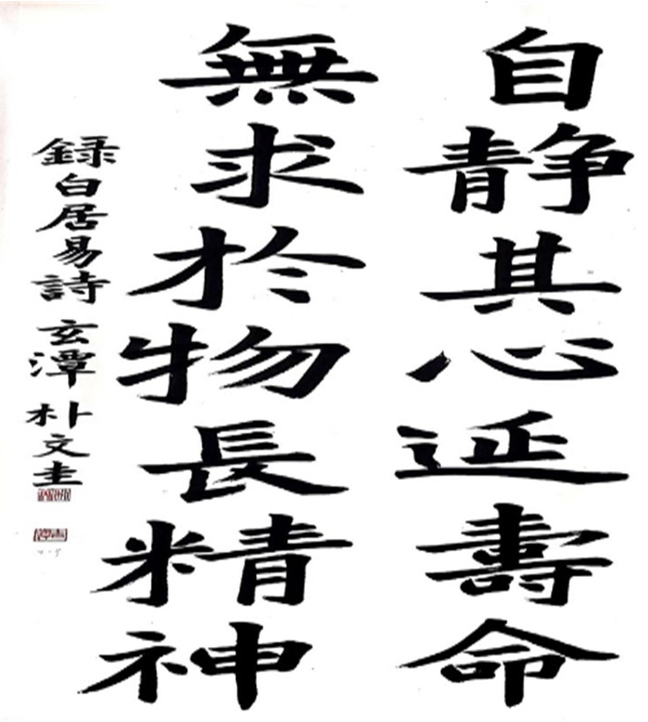 自静其心延壽命
無求於物長精神
録白居易詩 玄潭 朴文圭